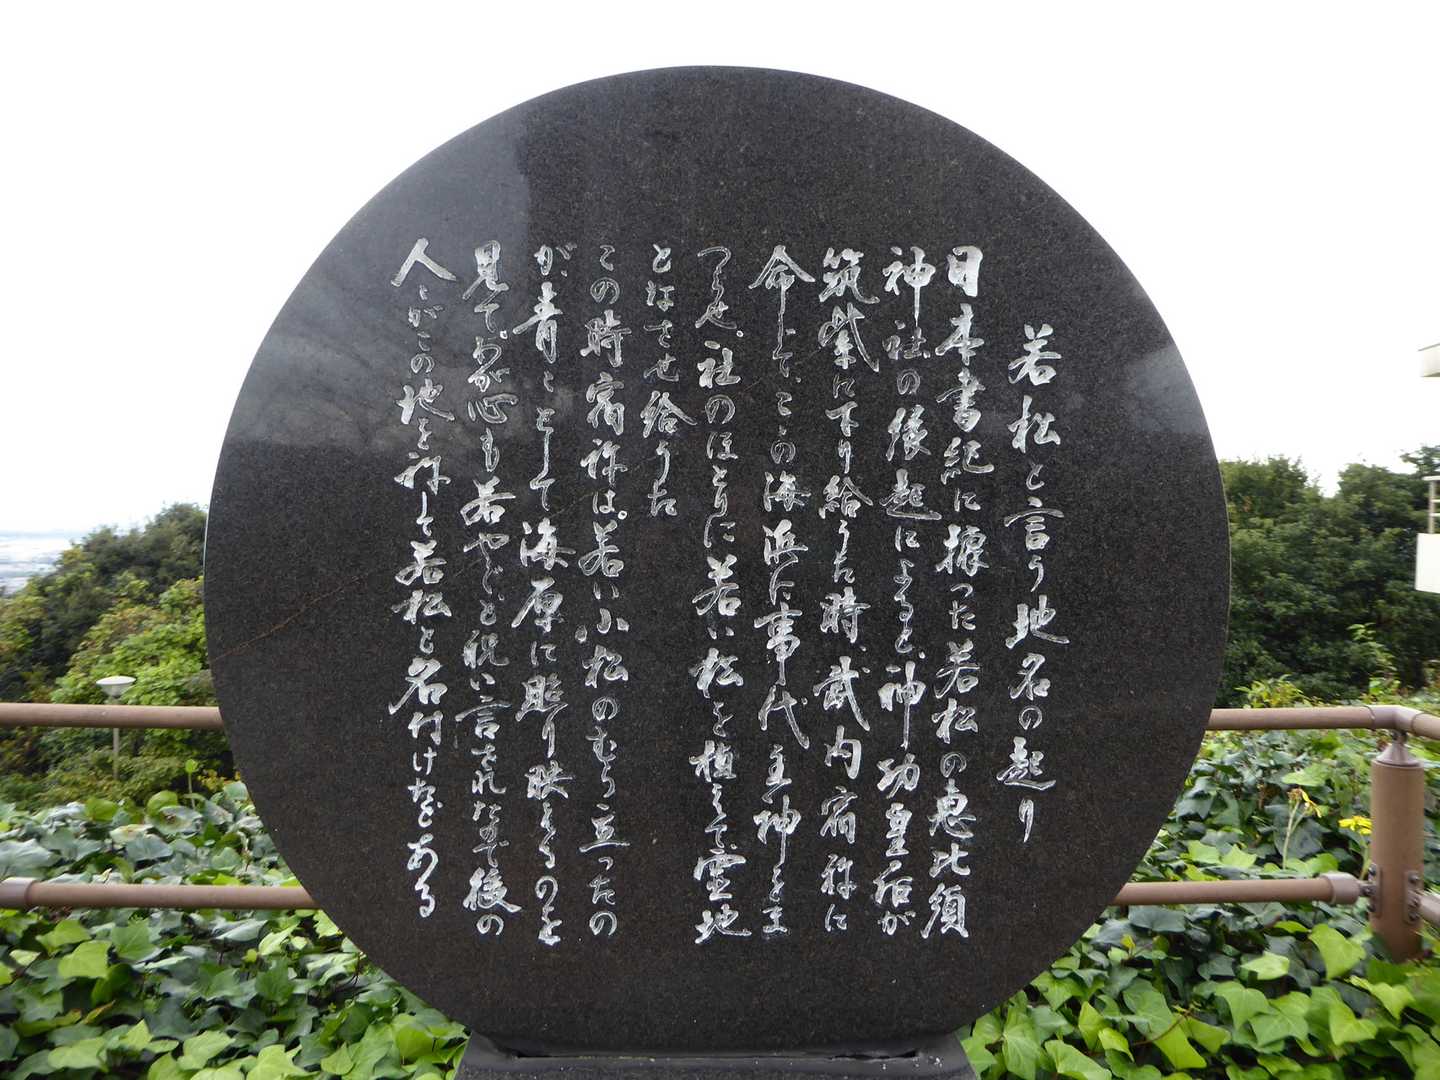 若松と言う地名の起り
日本書紀に據った若松の恵比須
神社の縁起によると、神功皇后が
筑紫に下り給うた時、武内宿祢に
命じて、ここの海浜に事代主神をま
つらせ、社のほとりに若い松を植えて、霊地
となさせ給うた
この時宿祢は、若い小松のむら立ったの
が、青々として海原に照り映えるのを
見て、わが心も若やぐと祝い言されたので後の
人々がこの地を称して若松と名付けたとある